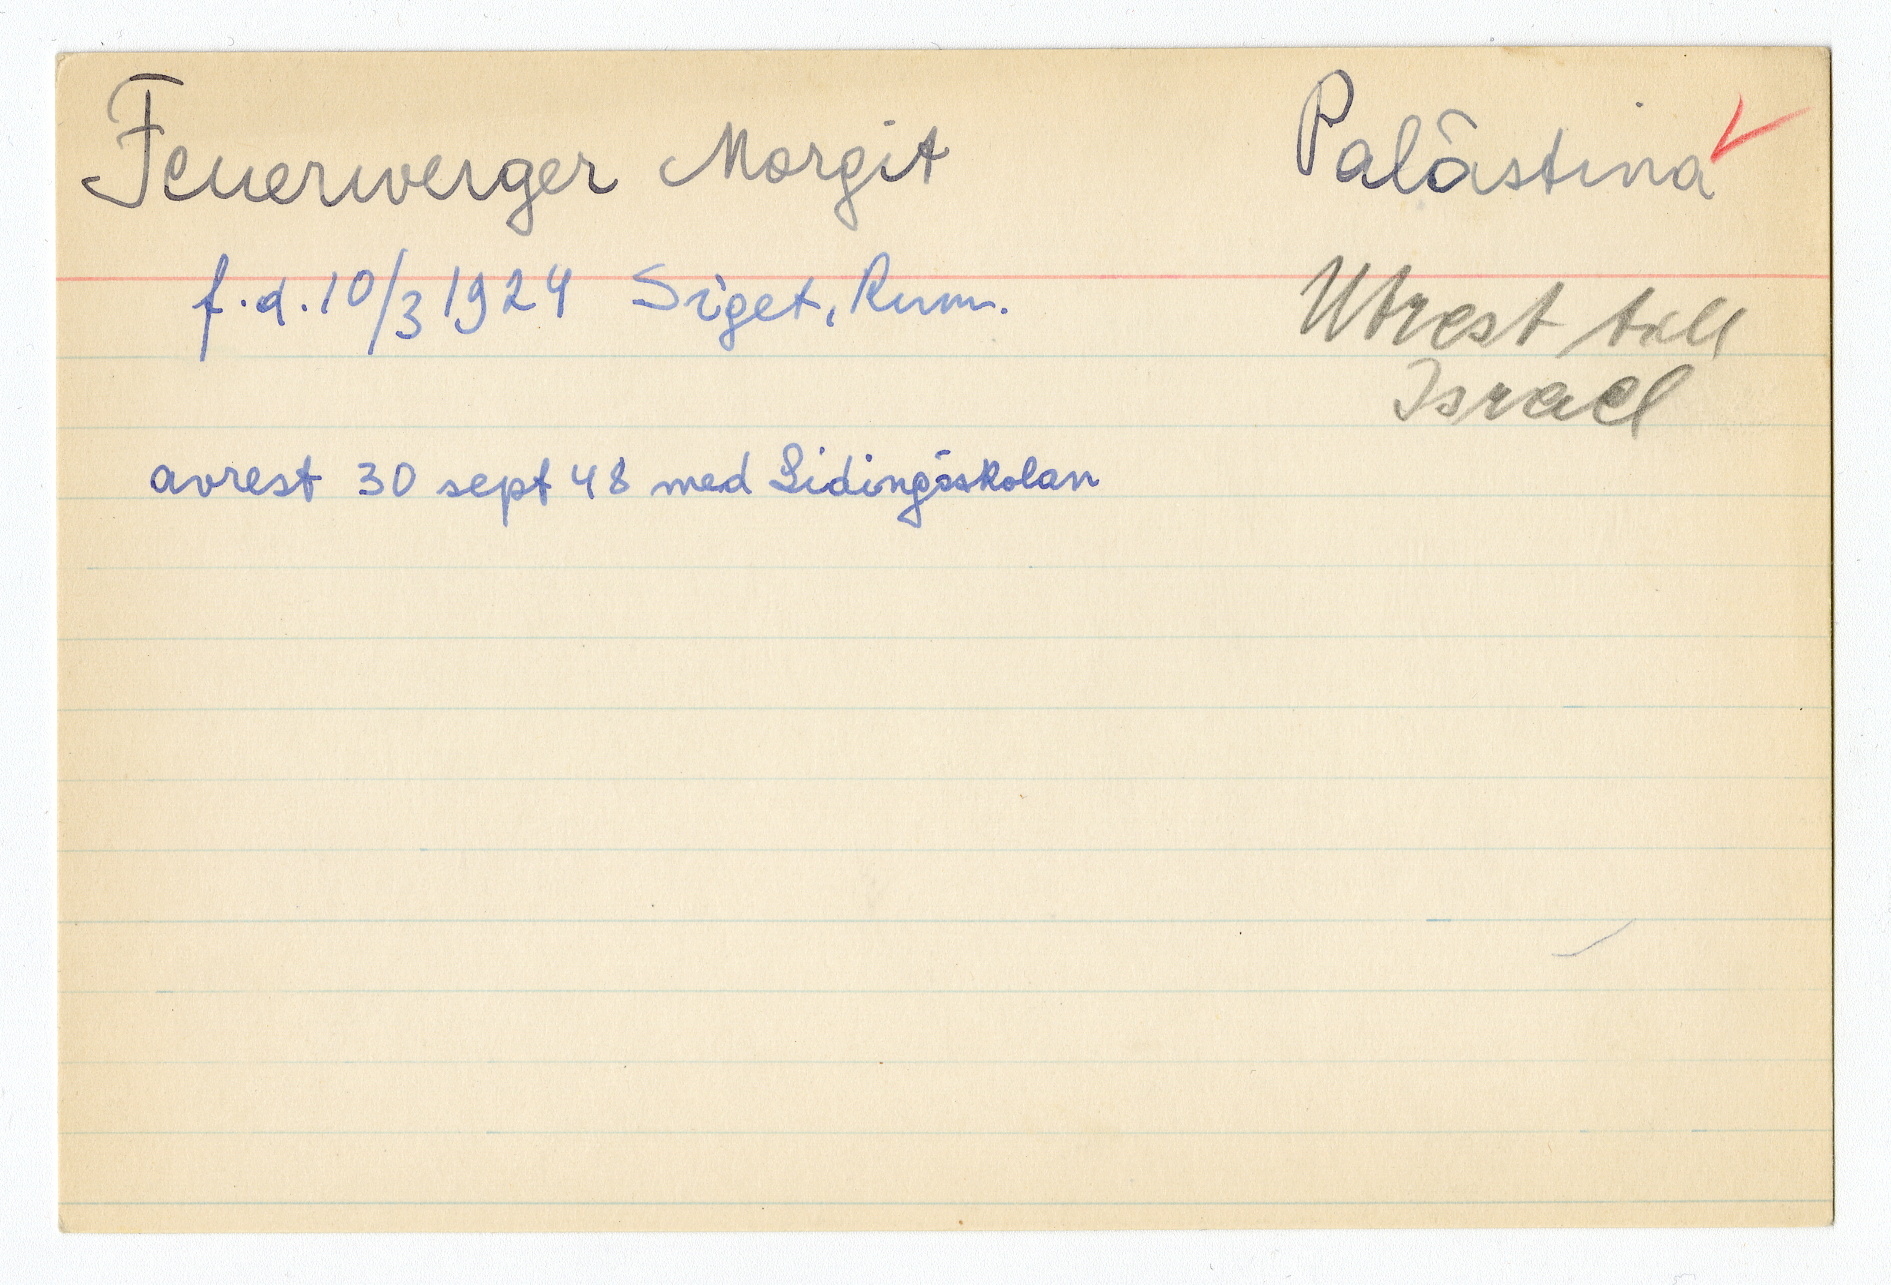 Feuerwerger Morgit
Palästina
f.d. 10/3 1924 Siget, Rum.
Utrest till
Israel
avrest 30 sept 48 med Lidingöskolan